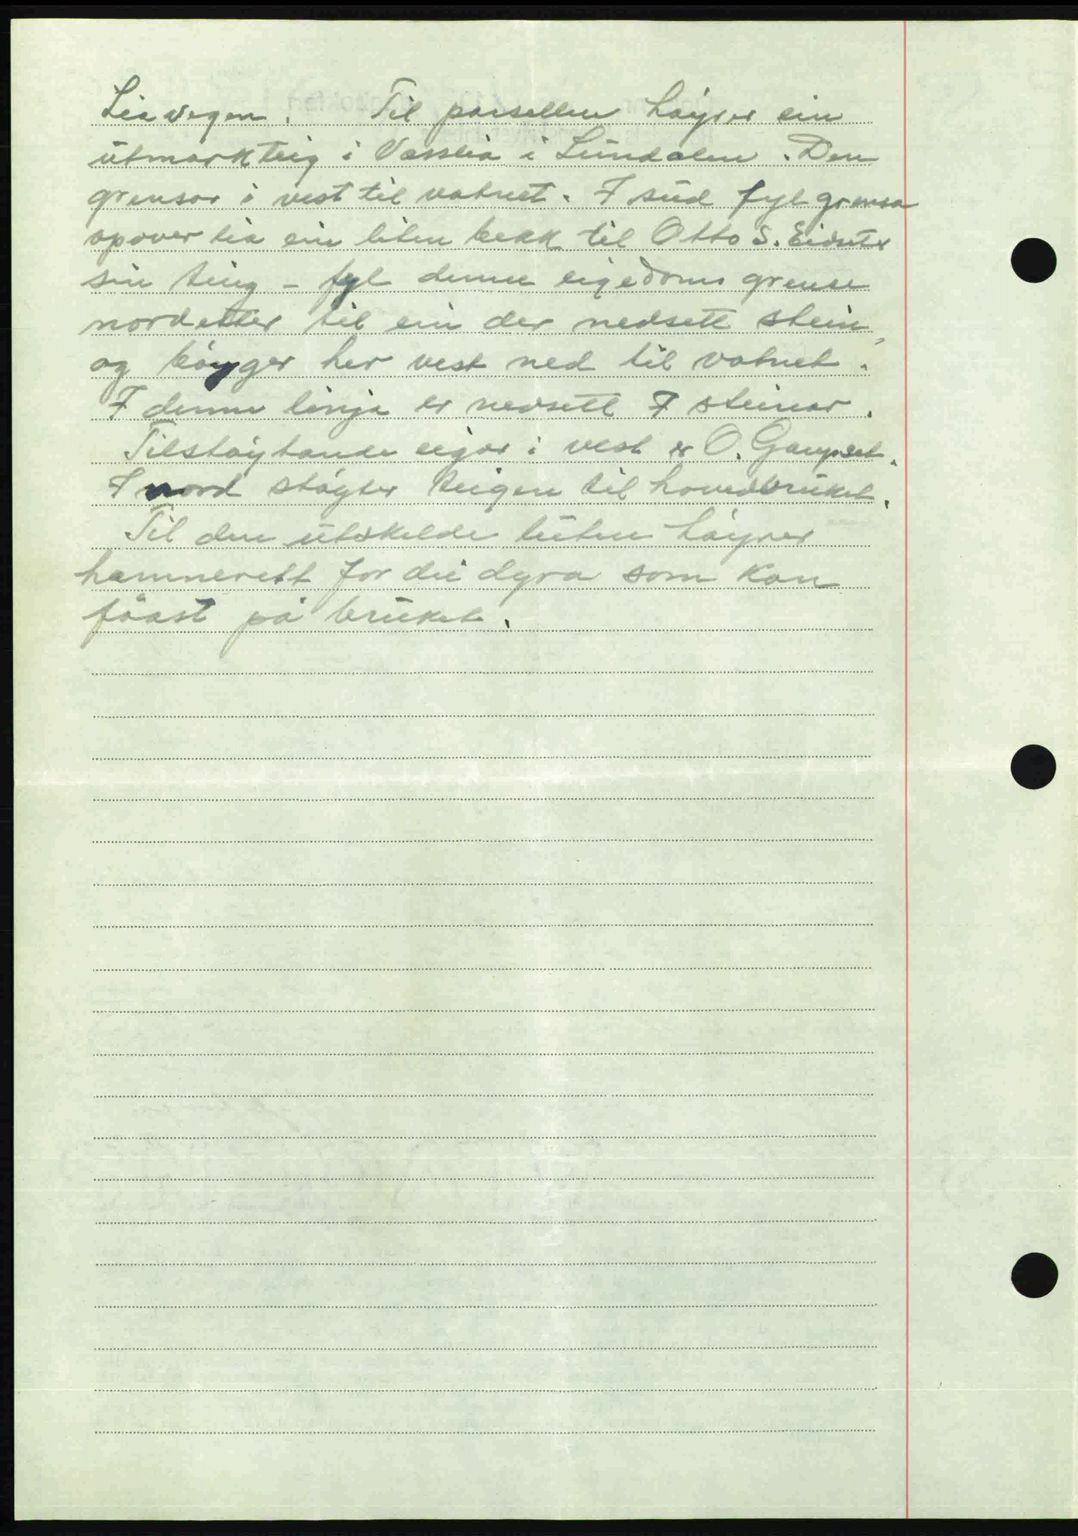 Lisvegen. Til parsellen höyrer ein
utmarkteig i Vasslia i Lundalen. Den
grensar i vest til vatnet. I sud fyl grensa
opover lia ein liten bekk til Otto S. Eidset
sin teig - fyl denne eigedoms grense
nordetter til ein der nedsett stein
og böyger her vest ned til vatnet.
I denne linja er nedsett 7 steinar.
Tilstöytande eigar i vest er O. Gaupset.
I nord stöyter teigen til hovedbruket.
Til den utskelde luten höyrer
hamnerett for dei dyra som kan
föast på bruket.